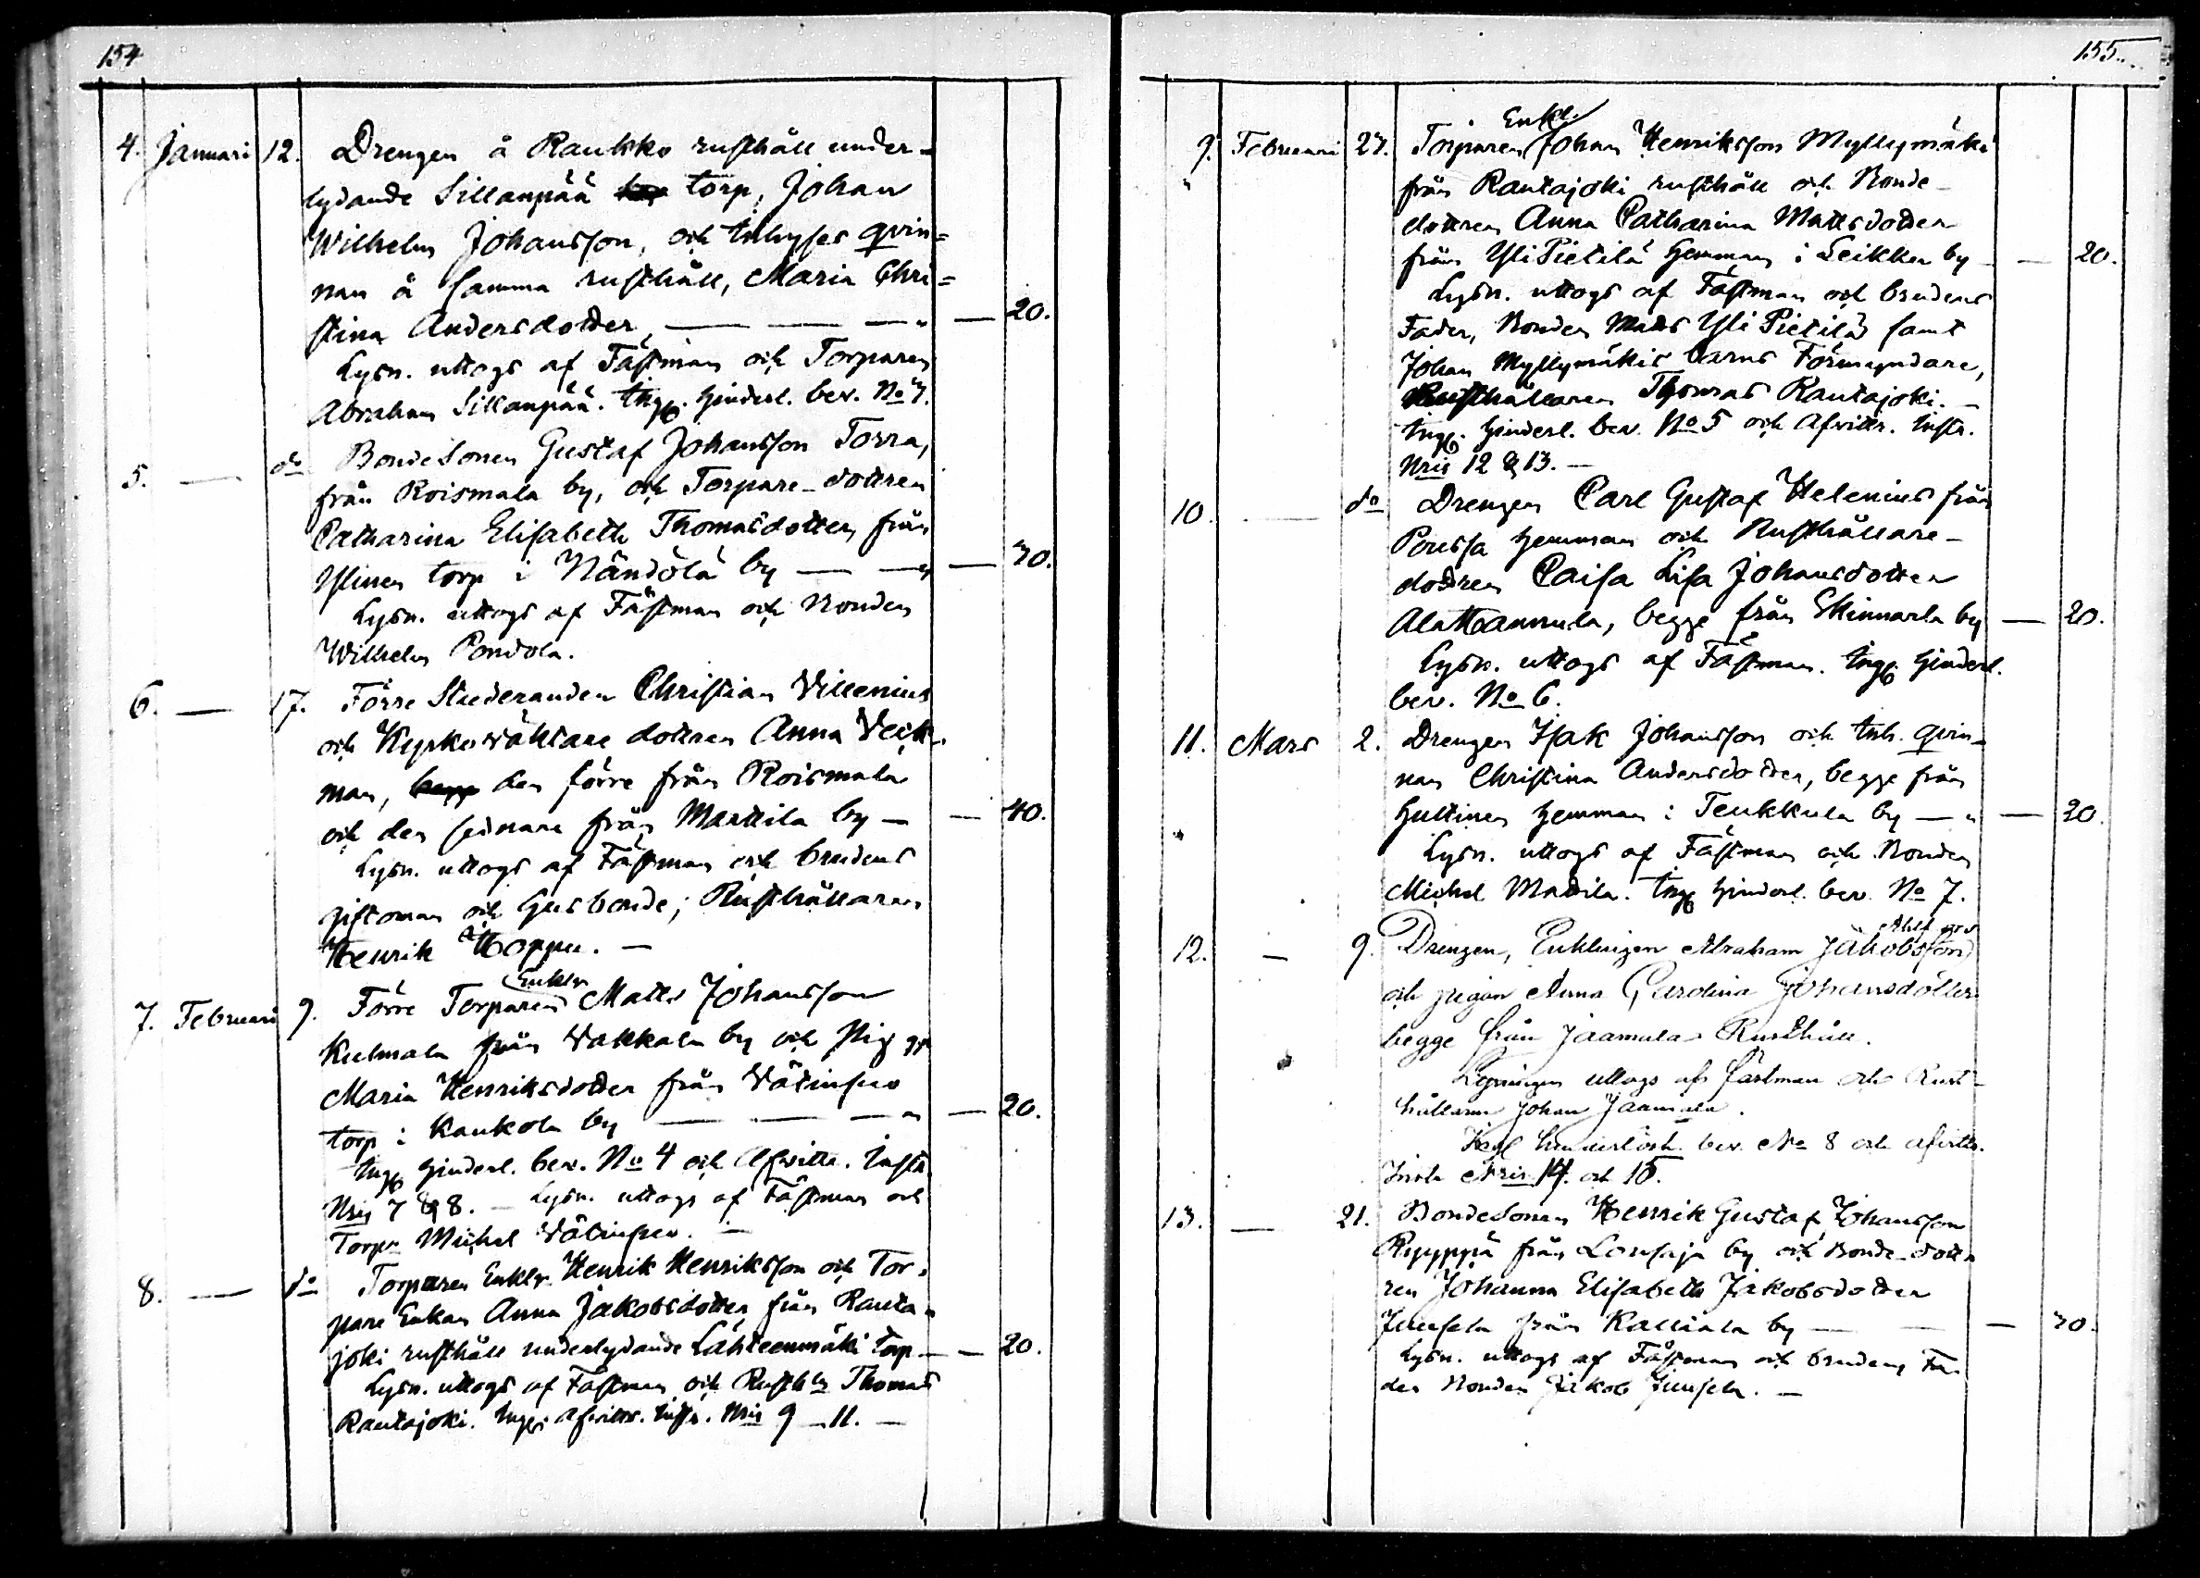 154
4. Januari 12. Drengen å Raukko rusthåll under-
lydande Sillanpää torp, Johan
Wilhelm Johansson, och Inhyses qvin=
nan å samma rusthåll, Maria Chri=
stina Andersdotter — — — " — 20.
Lysn. uttogs af Fästman och Torparen
Abraham Sillanpää. Ingg. hinderl. bev. No
5. — do Bondesonen Gustaf Johansson Torra,
från Roismala by, och Torpare-dottren
Catharina Elisabeth Thomasdotter från
Ylinen torp i Nändölä by — — " — 70.
Lysn. uttogs af Fästman och Bonden
Wilhelm Pondola.
6. — 17. Förre Studeranden Christian Villenius
och Kyrkowäktare dottren Anna Veck-
man, den förre från Roismala
och den sednare från Marttila by — — 40.
Lysn. uttogs af Fästman och brudens
giftoman och Husbonde; Rusthållaren
Henrik Hoppu. —
Enkln
7. Februari 9. Förre Torparen Matts Johansson
Kulmala från Wakkala by och Pig
Maria Henriksdotter från
torp i Kaukola by — — — " — 20.
Ingg hinderl. bev. No 4 och Afvittr. Instr.
Nris 7 & 8. — Lysn. uttogs af Fästman och
Torpn Michel
8. — do Torparen Enkln Henrik Henriksson och Tor-
pare Enkan Anna Jakobsdotter från Ranta-
joki rusthåll underlydande Lähteenmäki Torp — — 20.
Lysn. uttogs af Fästman och Rusthln Thomas
Rantajoki. Ingg. Afvittr. Instr. Nris 9 – 11. —
155.
Enkl.
9. Februari 27. Torparen Johan Henriksson Myllymäki
från Rantajoki rusthåll och Bonde-
dottren Anna Catharina Mattsdotter
från Yli Pietilä hemman i Leikku by — — 20.
Lysn. uttogs af Fästman och brudens
Fader, Bonden Matts Yli Pietilä samt
Johan Myllymäkis barns Förmyndare,
Rusthållaren Thomas Rantajoki. —
Ingg. hinderl. bev. No 5 och Afvittr. Instr.
Nris 12 & 13. —
10. — do Drengen Carl Gustaf Helenius från
Poussa hemman och Rusthållare-
dottren Caisa Lisa Johansdotter
Ala Hannula, begge från Skinnarla by — 20.
Lysn. uttogs af Fästman. Ingg. hinderl.
bev. No 6.
11. Mars 2. Drengen Isak Johansson och Inh. qvin-
nan Christina Andersdotter, begge från
Huttinen hemman i Teukkula by — " — 20
Lysn. uttogs af Fästman och Bonden
Michel Mattila. Ingg hinderl. bev. No 7.
12. — 9. Drengen, Enklingen Abraham Jakobsson
och pigan Anna Carolina Johansdotter
begge från Jaamala Rusthåll.
Lysningen uttogs af fästman och Rust-
hållaren Johan Jaamala.
hinderlösh. bev. No 8 och afvittr.
Instr Nris 14. och 15.
13. — 21. Bondesonen Henrik Gustaf Johansson
Ryyppä från Lousaja by och Bonde-dott-
ren Johanna Elisabeth Jakobsdotter
Juusela från Kalliala by — — — 70.
Lysn. uttogs af Fästman och brudens Fa-
der Bonden Jakob Juusela. —